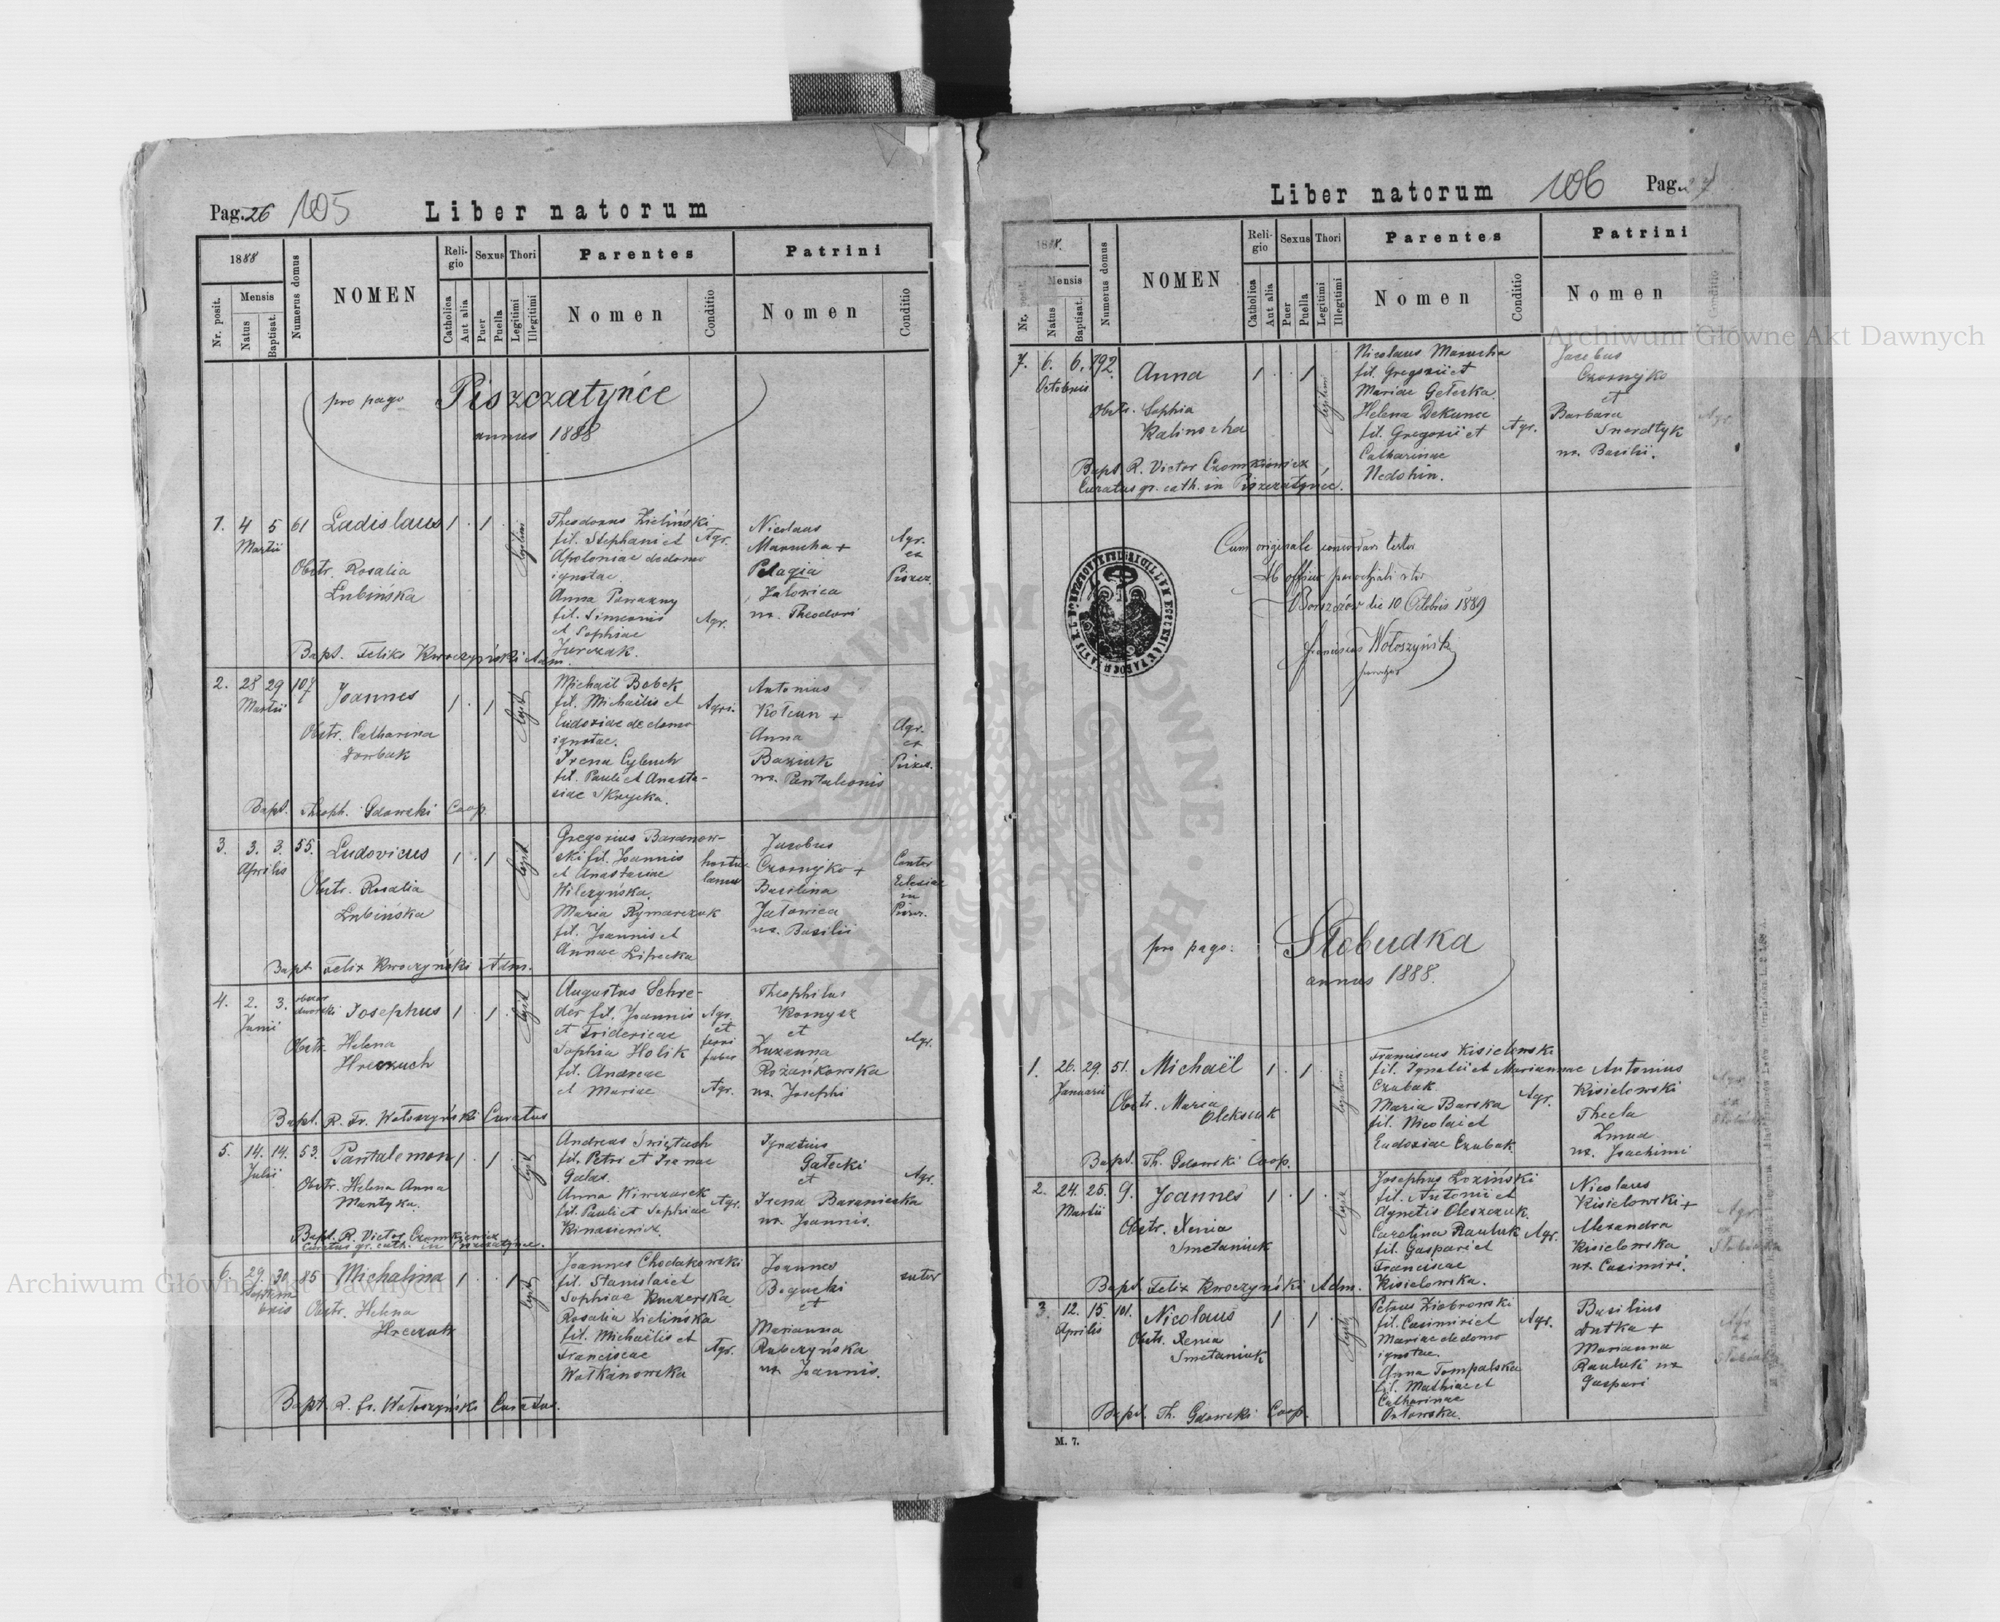 Pag. 26 105
Liber natorum
1888
Nr. posit.
Mensis
Natus
Baptisat.
Numerus domus
NOMEN
Religio
Catholica
Aut alia
Sexus
Puer
Puella
Thori
Legitimi
Illegitimi
Parentes
Nomen
Conditio
Patrini
Nomen
Conditio
pro pago Piszczatyńce
annus 1888
1. 4 5 61 Ladislaus 1 . 1 .
Martii
Obstr. Rosalia
Lubinska
Theodorus Zieliński
fil. Stephani et
Apoloniae de domo
ignotae.
Anna Poważny
fil. Simeonis
et Sophiae
Jurczak.
Agr.
Agr.
Nicolaus
Marucha +
Pelagia
Jatowica
ux. Theodori
Agr.
ex
Piszcz.
Bapt. Feliks Kwoczyński Adm.
2. 28 29 107 Joannes 1 . 1 .
Martii
Obstr. Catharina
Dowbak
Michaël Bobek
fil. Michaëlis et
Eudoxiae de domo
ignotae.
Irena Cybuch
fil. Pauli et Anasta-
siae Skrycka.
Agri.
Antonius
Kotcun +
Anna
Baziuk
ux. Pantaleonis
Agr.
ex
Piszcz.
Bapt. Theoph. Gdowski Coop.
3. 3. 3. 55. Ludovicus 1 . 1 .
Aprilis
Obstr. Rosalia
Lubińska
Gregorius Baranow-
ski fil. Joannis
et Anastasiae
Wilczyńska.
Maria Rymarczuk
fil. Joannis et
Annae Lipecka
hortu
lanus
Jacobus
Czornyjko +
Basilina
Jatowica
ux. Basilii
Cantor
Eclesiae
in
Piszcz.
Bapt Felix Kwoczyński Adm.
4. 2. 3. obszar dworski Josephus 1 . 1 .
Junii
Obstr. Helena
Hreczuch
Augustus Schre-
der fil. Joannis
et Fridericae
Sophia Holik
fil. Andreae
et Mariae
Agr.
et
ferri
faber
Agr.
Theophilus
Kornysz
et
Zuzanna
Rożankowska
ux. Josephi
Agr.
Bapt. R. Fr. Wołoszyński Curatus
5. 14. 14. 53. Pantalemon 1 . 1 .
Julii
Obstr. Helena Anna
Mantyka.
Andreas Świętuch
fil. Petri et Irenae
Galas.
Anna Kiwczarek
fil. Pauli et Sophiae
Kinasiewicz.
Agr.
Ignatius
Gałecki
et
Irena Baraniecka
ux. Joannis.
Agr.
Bapt. R. Victor Czomkiewicz
Curatus gr. cath. in Piszczatynce.
6. 29. 30. 85 Michalina 1 . . 1
Septem
bris
Obstr. Helena
Hreczuk
Joannes Chodakowski
fil. Stanislai et
Sophiae Kuczerska.
Rosalia Zielińska
fil. Michaëlis et
Franciscae
Watkanowska
Agr.
Joannes
Bogucki
et
Marianna
Rubczyńska
ux. Joannis.
sutor
Bapt. R. Fr. Wołoszyński Curatus.
Liber natorum 106 Pag. 27
1888.
Nr. posit.
Mensis
Natus
Baptisat.
Numerus domus
NOMEN
Religio
Catholica
Aut alia
Sexus
Puer
Puella
Thori
Legitimi
Illegitimi
Parentes
Nomen
Conditio
Patrini
Nomen
Conditio
7. 6. 6. 192. Anna 1 . . 1
Octobris
Obstr. Sophia
Kalinocha
Nicolaus Marucha
fil. Gregorii et
Mariae Geteska.
Helena Dekunec
fil. Gregorii et
Catharinae
Nedohin.
Agr.
Jacobus
Czornyjko
et
Barbara
Smerdtyk
ux. Basilii.
Agr.
Bapt. R. Victor Czomkiewicz
Curatus gr. cath. in Piszczatynce.
Cum originale concordare testor
Ab officio parochiali r. l.
Borszczów die 10 Octobris 1889
Franciscus Wołoszyński
parochus
pro pago: Słobudka
annus 1888.
1. 26. 29. 51. Michaël 1 . 1 .
Januarii
Obstr. Maria
Oleksiuk
Franciscus Kisielewski
fil. Ignatii et Mariannae
Czubak.
Maria Barska
fil. Nicolai et
Eudoxiae Czubak.
Agr.
Antonius
Kisielowski
Thecla
Zmud
ux. Joachimi
Bapt. Th. Gdowski Coop.
2. 24. 25. 9. Joannes 1 . 1 .
Martii
Obstr. Xenia
Smetaniuk
Josephus Loziński
fil. Antonii et
Agnetis Oleszczuk.
Carolina Rauluk
fil. Gaspari et
Franciscae
Kisielowska.
Agr.
Nicolaus
Kisielowski +
Alexandra
Kisielowska
ux. Casimiri.
Bapt. Felix Kwoczyński Adm.
3. 12. 15. 101. Nicolaus 1 . 1 .
Aprilis
Obstr. Xenia
Smetaniuk
Petrus Ziobrowski
fil. Casimiri et
Mariae de domo
ignotae.
Anna Tompalska
fil. Mathiae et
Catharinae
Ostowska.
Agr.
Basilius
Dutka +
Marianna
Rauluk ux
Gaspari
Bapt. Th. Gdowski Coop.
M. 7.
Archiwum Główne Akt Dawnych
Archiwum Główne Akt Dawnych
ARCHIWUM GŁÓWNE AKT DAWNYCH